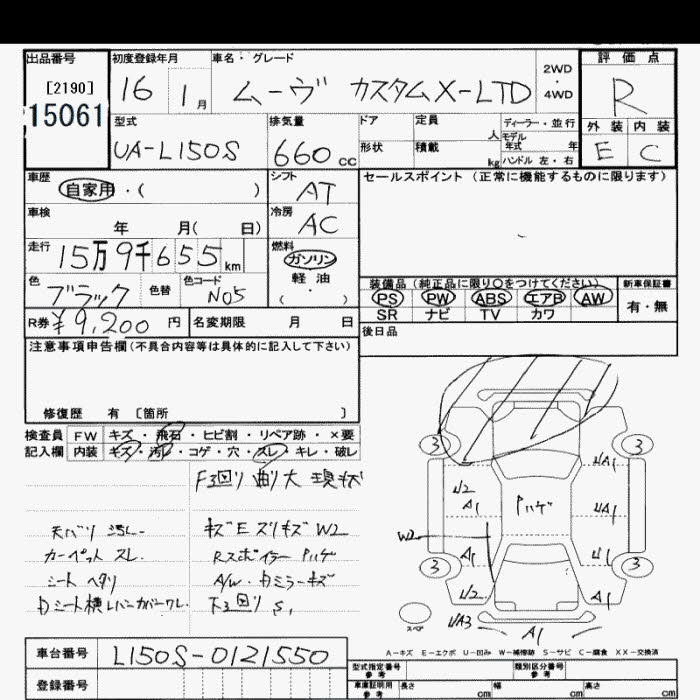 出品番号 初度登録年月 車名・グレード 評価点
[2190] 16 1月 ムーヴ カスタムX-LTD 2WD・4WD R
15061 型式 排気量 ドア 定員 人 ディーラー・並行 外装 内装
UA-L150S 660cc 形状 積載 kg モデル年式 年 ハンドル 左・右 E C
車歴 自家用・( ) シフト AT セールスポイント (正常に機能するものに限ります)
車検 年 月( 日) 冷房 AC
走行 15万9千655km 燃料 ガソリン
軽油
( ・ )
色 ブラック 色替 色コード N05
装備品 (純正品に限り○をつけてください) 新車保証書
PS PW ABS エアB AW 有・無
SR ナビ TV カワ
R券 ¥9,200円 名変期限 月 日 後日品
注意事項申告欄 (不具合内容等は具体的に記入して下さい)
修復歴 有 [箇所 ]
検査員 FW キズ・飛石・ヒビ割・リペア跡・×要
記入欄 内装 キズ・汚レ・コゲ・穴・スレ・キレ・破レ
F3回り曲大 現状
天バリ 汚レ
キズE ズリキズ W2
カーペット スレ
Rスポイラー Pハゲ
シート ヘタリ
A/W・Dミラーキズ
Dシート横レバーカバーワレ
下3回り S1
3 3
UA1
U2 A1 Pハゲ UA1
W2 A1 U1
3 3
U2 A1
スペア UA3 A1
A-キズ E-エクボ U-凹み W-補修跡 S-サビ C-腐食 XX-交換済
車台番号 L150S-0121550
登録番号
型式指定番号 参考 類別区分番号 参考
車庫証明用 参考 長さ cm 幅 cm 高さ cm